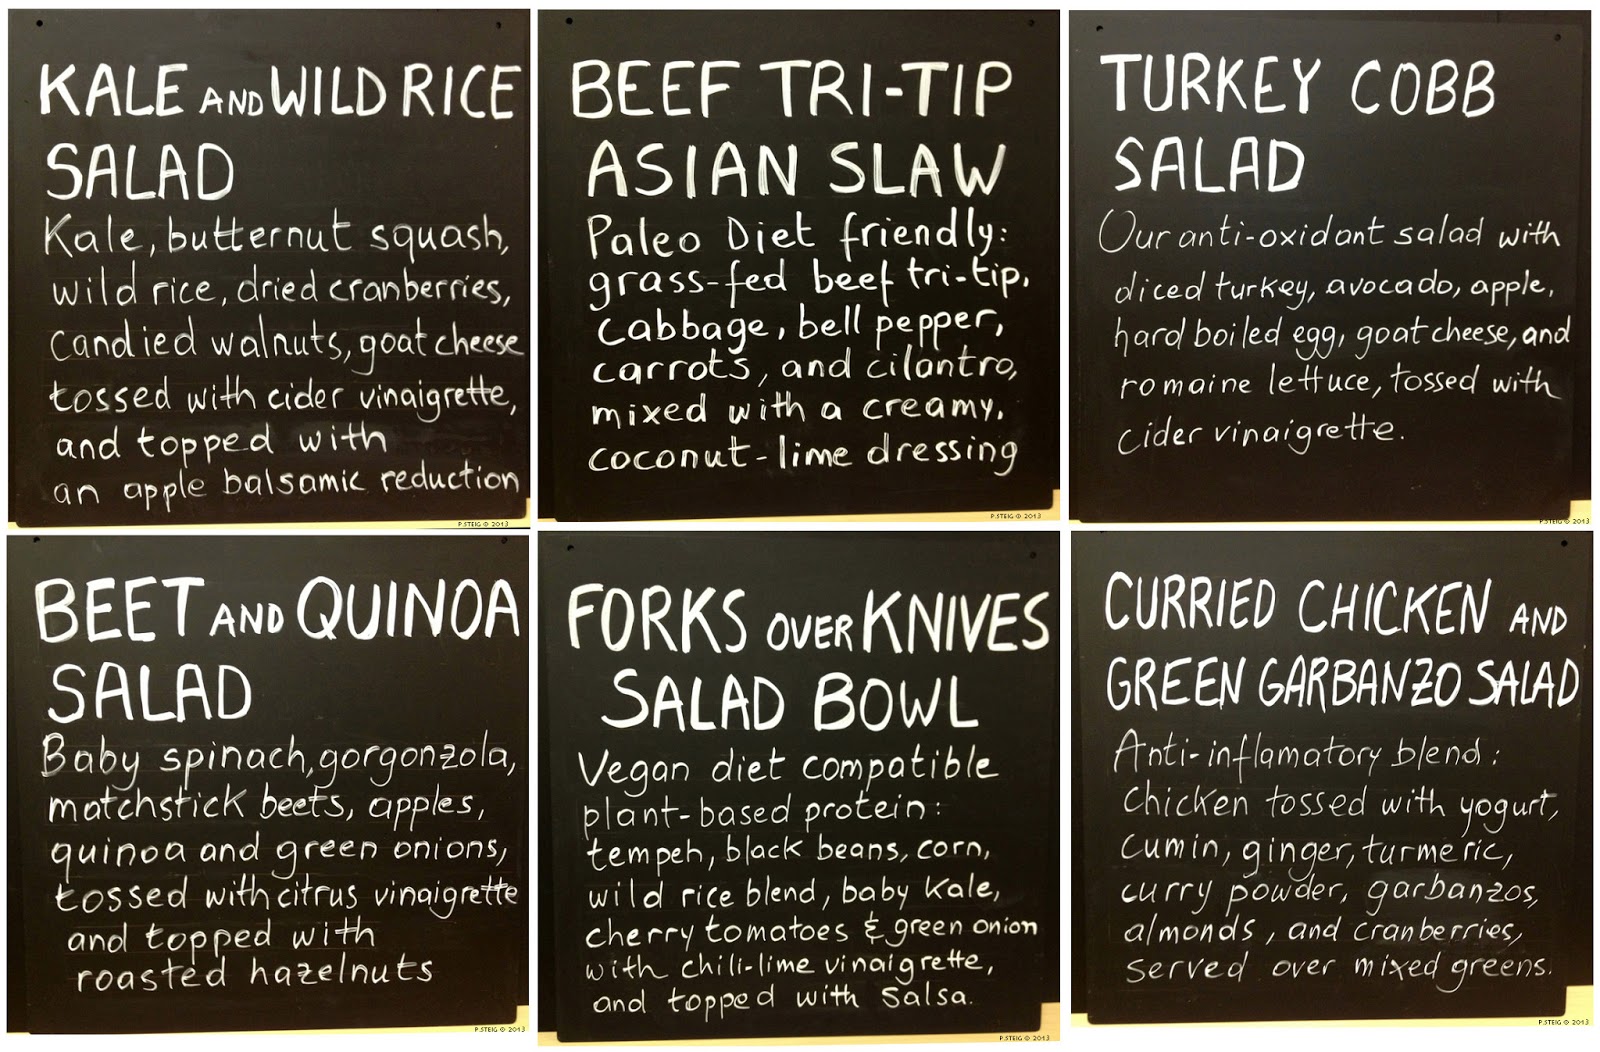 KALE AND WILD RICE
SALAD
Kale, butternut squash,
wild rice, dried cranberries,
candied walnuts, goat cheese
tossed with cider vinaigrette,
and topped with
an apple balsamic reduction
P.STEIG © 2013
BEEF TRI-TIP
ASIAN SLAW
Paleo Diet friendly:
grass-fed beef tri-tip,
cabbage, bell pepper,
carrots, and cilantro,
mixed with a creamy,
coconut-lime dressing
P.STEIG © 2013
TURKEY COBB
SALAD
Our anti-oxidant salad with
diced turkey, avocado, apple,
hard boiled egg, goat cheese, and
romaine lettuce, tossed with
cider vinaigrette.
P.STEIG © 2013
BEET AND QUINOA
SALAD
Baby spinach, gorgonzola,
matchstick beets, apples,
quinoa and green onions,
tossed with citrus vinaigrette
and topped with
roasted hazelnuts
P.STEIG © 2013
FORKS OVER KNIVES
SALAD BOWL
Vegan diet compatible
plant-based protein:
tempeh, black beans, corn,
wild rice blend, baby kale,
cherry tomatoes & green onion
with chili-lime vinaigrette,
and topped with salsa.
P.STEIG © 2013
CURRIED CHICKEN AND
GREEN GARBANZO SALAD
Anti-inflamatory blend:
chicken tossed with yogurt,
cumin, ginger, turmeric,
curry powder, garbanzos,
almonds, and cranberries,
served over mixed greens.
P.STEIG © 2013